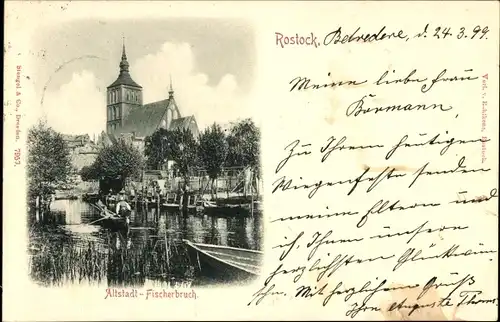 Rostock, Belvedere, d. 24.3.99.
Meine liebe Frau
Bormann,
Zu Ihrem heutigen
Wiegenfeste senden
meine Eltern und
ich, Ihnen unsern
herzlichsten Glückwün
Mit herzlichem Gruß
Ihre Auguste
Altstadt-Fischerbruch.
Stengel & Co., Dresden. 7957.
Rostock.